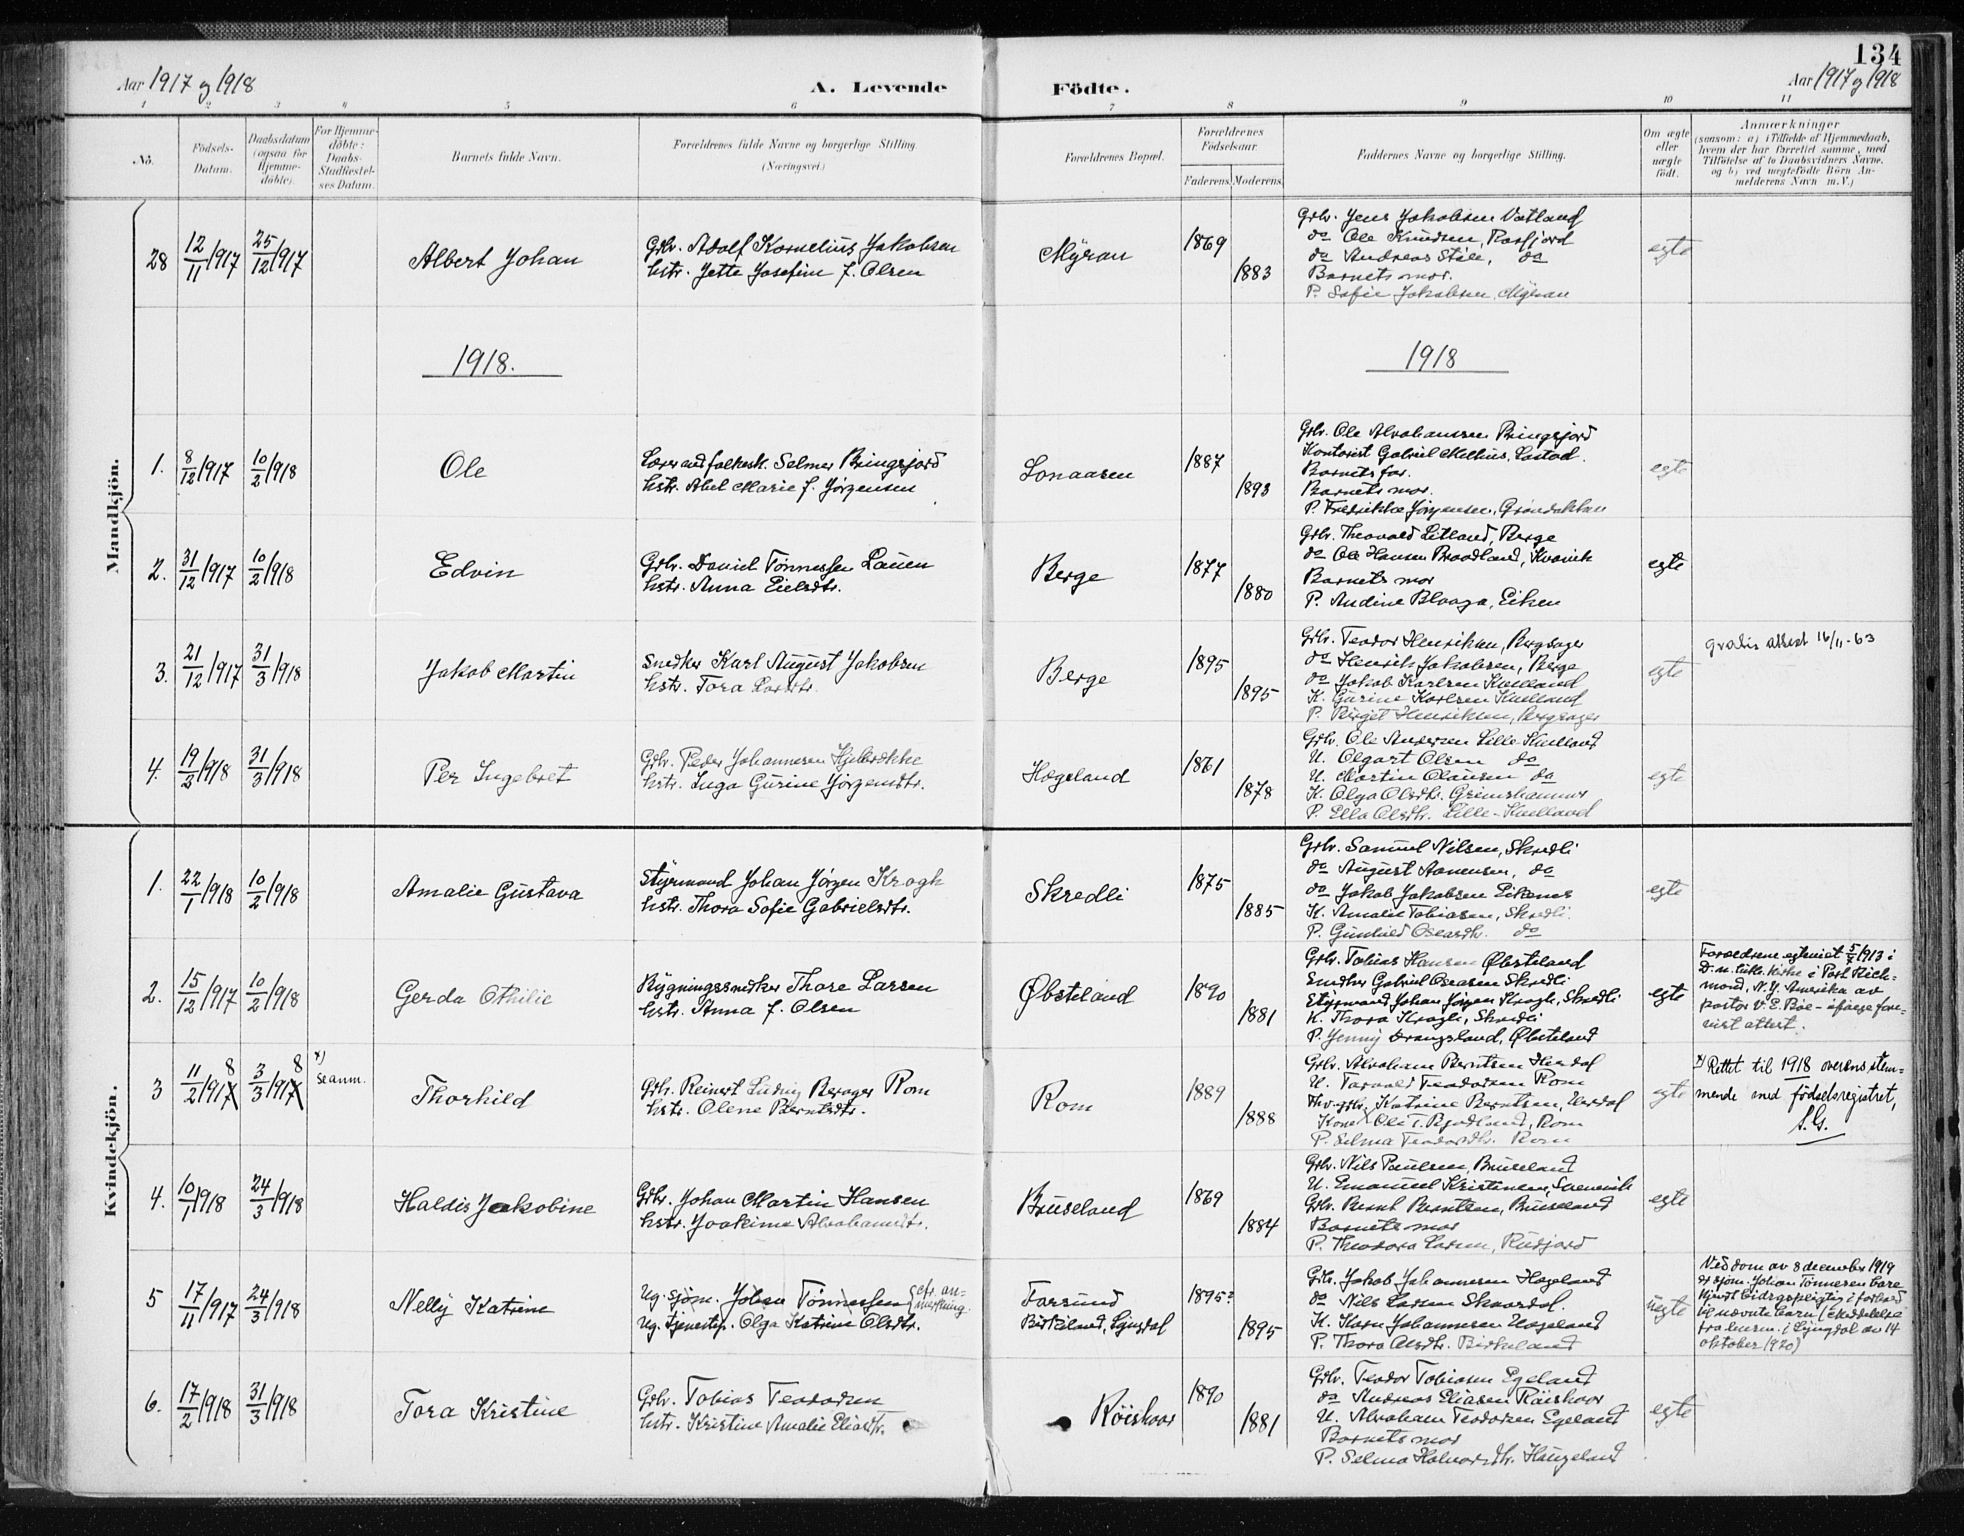 134
Aar 1917 og 1918
A. Levende Födte.
Aar 1917 og 1918
1 2 3 4 5 6 7 8 9 10 11
No.
Födsels-Datum.
Daabsdatum (ogsaa for Hjemmedöbte).
For Hjemmedöbte: Daabs-Stadfæstelses Datum.
Barnets fulde Navn.
Forældrenes fulde Navne og borgerlige Stilling. (Næringsvei)
Forældrenes Bopæl.
Forældrenes Födselsaar.
Faderens. Moderens.
Faddernes Navne og borgerlige Stilling.
Om ægte eller uægte födt.
Anmærkninger
(saasom: a) i Tilfælde af Hjemmedaab,
hvem der har forrettet samme, med
Tilföielse af to Daabsvidners Navne,
og b) ved uægtefödte Börn Anmelderens Navn m. V.)
Mandkjön.
28 12/11 1917 25/12 1917 Albert Johan
Grbr. Adolf Kornelius Jakobsen
hstr. Jette Josefine f. Olsen
Myran 1869 1883
Grbr. Jens Jakobsen Vatland
do Ole Knudsen, Rosfjord
do Andreas Støle, do
Barnets mor.
P. Sofie Jakobsen, Myran
egte
1918.
1918
1. 8/12 1917 10/2 1918 Ole
Lærer ved folkesk. Selmer Bringsjord
hstr. Abel Marie f. Jørgensen
Lonaasen 1887 1893
Grbr. Ole Abrahamsen Bringsjord
Kontorist Gabriel Melhus, Lastad.
Barnets far.
Barnets mor.
P. Fredrikke Jørgensen, Grøndokken
egte
2. 31/12 1917 10/2 1918 Edvin
Grbr. Daniel Tønnessen Lauen
hstr. Anna Eielsdtr.
Berge 1877 1880
Grbr. Theovald Litland, Berge
do Ole Hansen Braadland, Kvavik
Barnets mor
P. Andine Bloaga, Eiken
egte
3. 21/12 1917 31/3 1918 Jakob Martin
Snedker Karl August Jakobsen
hstr. Tora
Berge 1895 1895
Grbr. Teodor Henriksen, Bergsager
do Henrik Jakobsen, Berge
do Jakob Karlsen Kvelland
K. Gurine Karlsen Kvelland
P. Birget Henriksen, Bergsager
egte
gratis attest 16/11-63
4. 19/2 1918 31/3 1918 Per Ingebret
Grbr. Peder Johannesen Hjelbrekke
hstr. Inga Gurine Jørgensdtr.
Hægeland 1861 1878
Grbr. Ole Andersen Lille-Kvelland
U. Olgart Olsen do
U. Martin Olausen do
K. Olga Olsdtr. Grimshammer
P. Ella Olsdtr. Lille-Kvelland
egte
Kvindekjön.
1. 22/1 1918 10/2 1918 Amalie Gustava
Styrmand Johan Jørgen Krogh
hstr. Thora Sofie Gabrielsdtr.
Skredli 1875 1885
Grbr. Samuel Nilsen, Skredli
do August Aanensen, do
do Jakob Jakobsen Eikenes
K. Amalie Tobiasen, Skredli.
P. Gunhild Oscarsdtr. do
egte
2. 15/12 1917 10/2 1918 Gerda Othilie
Bygningssnedker Thore Larsen
hstr. Anna f. Olsen
Øbsteland 1890 1881
Grbr. Tobias Hansen Øbsteland
Snedker Gabriel Oscarsen Skredli
Styrmand Johan Jørgen Krogh, Skredli
K. Thora Krogh, Skredli
P. Jenny Drangsland, Øbsteland
egte
Forældrene egteviet 5/7 1913 i
D. n. luth. kirke i Port Rich-
mond, N.Y. Amerika av
pastor V. E. Boe - ifølge fore-
vist attest.
3 11/2 1917 8 3/3 1917 8 x) Se anm. Thorhild
Grbr. Reinert Ludvig Berager Rom
hstr. Olene Berntsdtr.
Rom 1889 1888
Grbr. Abraham Berntsen Herdal
U. Torvald Teodorsen Rom
Katrine Berntsen, Herdal
Kone Ole T. Bjodland, Rom
P. Selma Teodorsdtr. Rom
egte
x) Rettet til 1918 overensstem-
mende med fødselsregistret,
S.G.
4. 10/1 1918 24/3 1918 Haldis Jakobine
Grbr. Johan Martin Hansen
hstr. Joakime Abrahamsdtr.
Bruseland 1869 1884
Grbr. Nils Paulsen, Bruseland
U. Emanuel Kristensen,
Grbr. Bernt Berntsen, Bruseland
Barnets mor
P. Theodora Larsen, Rudjord
egte
5 17/11 1917 24/3 1918 Nelly Katrine
Ug. sjøm. Johan Tønnessen (cfr. an-
mærkning.
Ug. tjenestep. Olga Katrine Olsdtr.
Farsund
Birkeland, Lyngdal 1895? 1895
Grbr. Jakob Johannesen Hægeland
do Nils Larsen Skaardal.
K. Karn Johannesen Hægeland
P. Thora Olsdtr. Birkeland
uegte
Ved dom av 8 december 1919
er sjøm. Johan Tønnesen bare
kjendt bidragspligtig i forhold
til nævnte barn. (Meddelelse
fra lensm. i Lyngdal av 14
oktober 1920)
6. 17/2 1918 31/3 1918 Tora Kristine
Grbr. Tobias Teodorsen
hstr. Kristine Amalie Eliasdtr.
Røiskaar 1890 1881
Grbr. Teodor Tobiasen Egeland
do Andreas Eliasen Røiskaar
U. Abraham Teodorsen Egeland
Barnets mor
P. Selma Halvorsdtr. Haugeland
egte